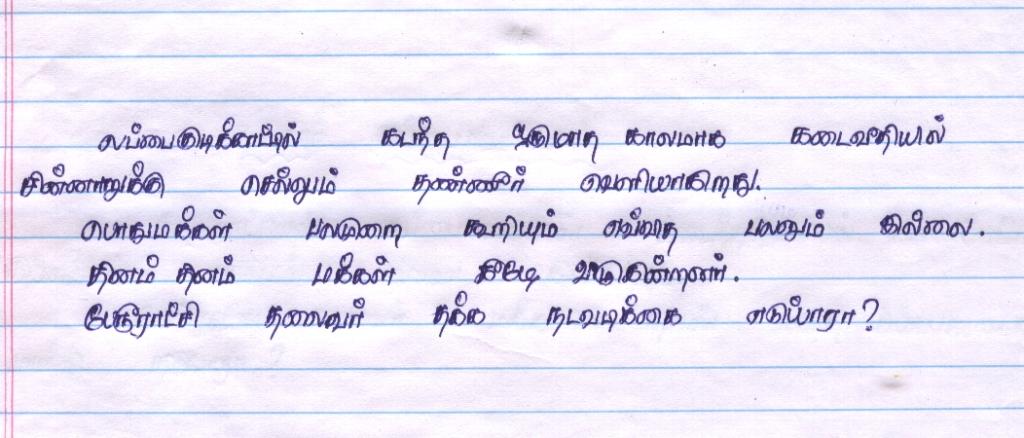 லப்பைகுடிக்காட்டில் கடந்த ஒருமாத காலமாக கடைவீதியில்
சின்னாறுக்கு செல்லும் தண்ணீர் வெளியாகிறது.
பொதுமக்கள் பலமுறை கூறியும் எவ்வித பலனும் இல்லை.
தினம் தினம் மக்கள்
பேரூராட்சி தலைவர் தக்க நடவடிக்கை எடுப்பாரா?